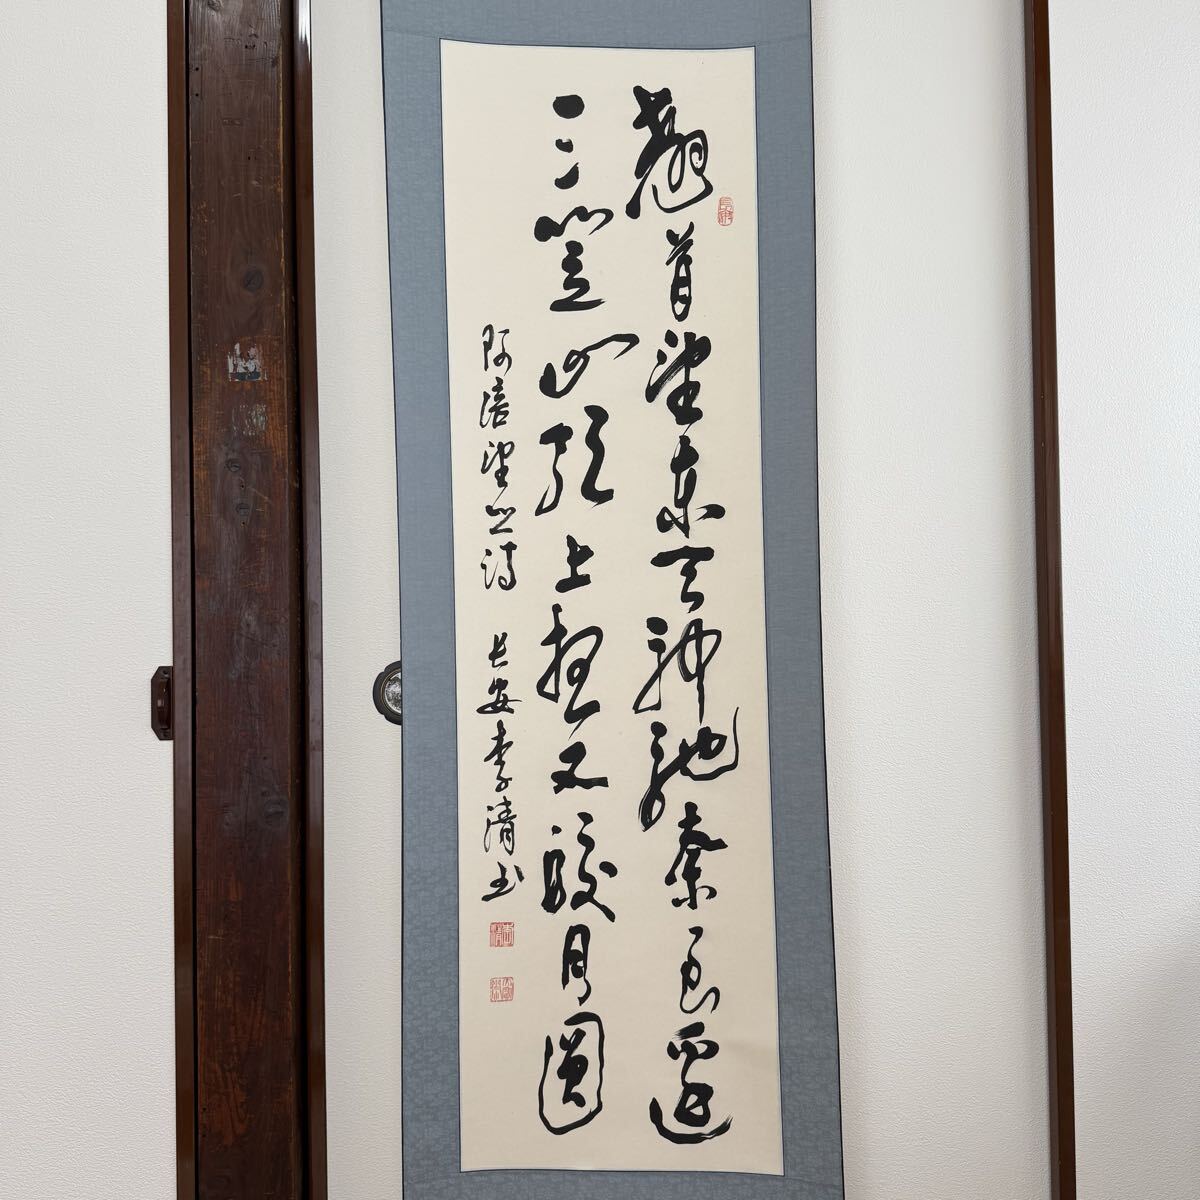 翹首望東天神馳奈良邊
三笠山頂上想又皎月圓
阿倍望鄉詩 長安李清書